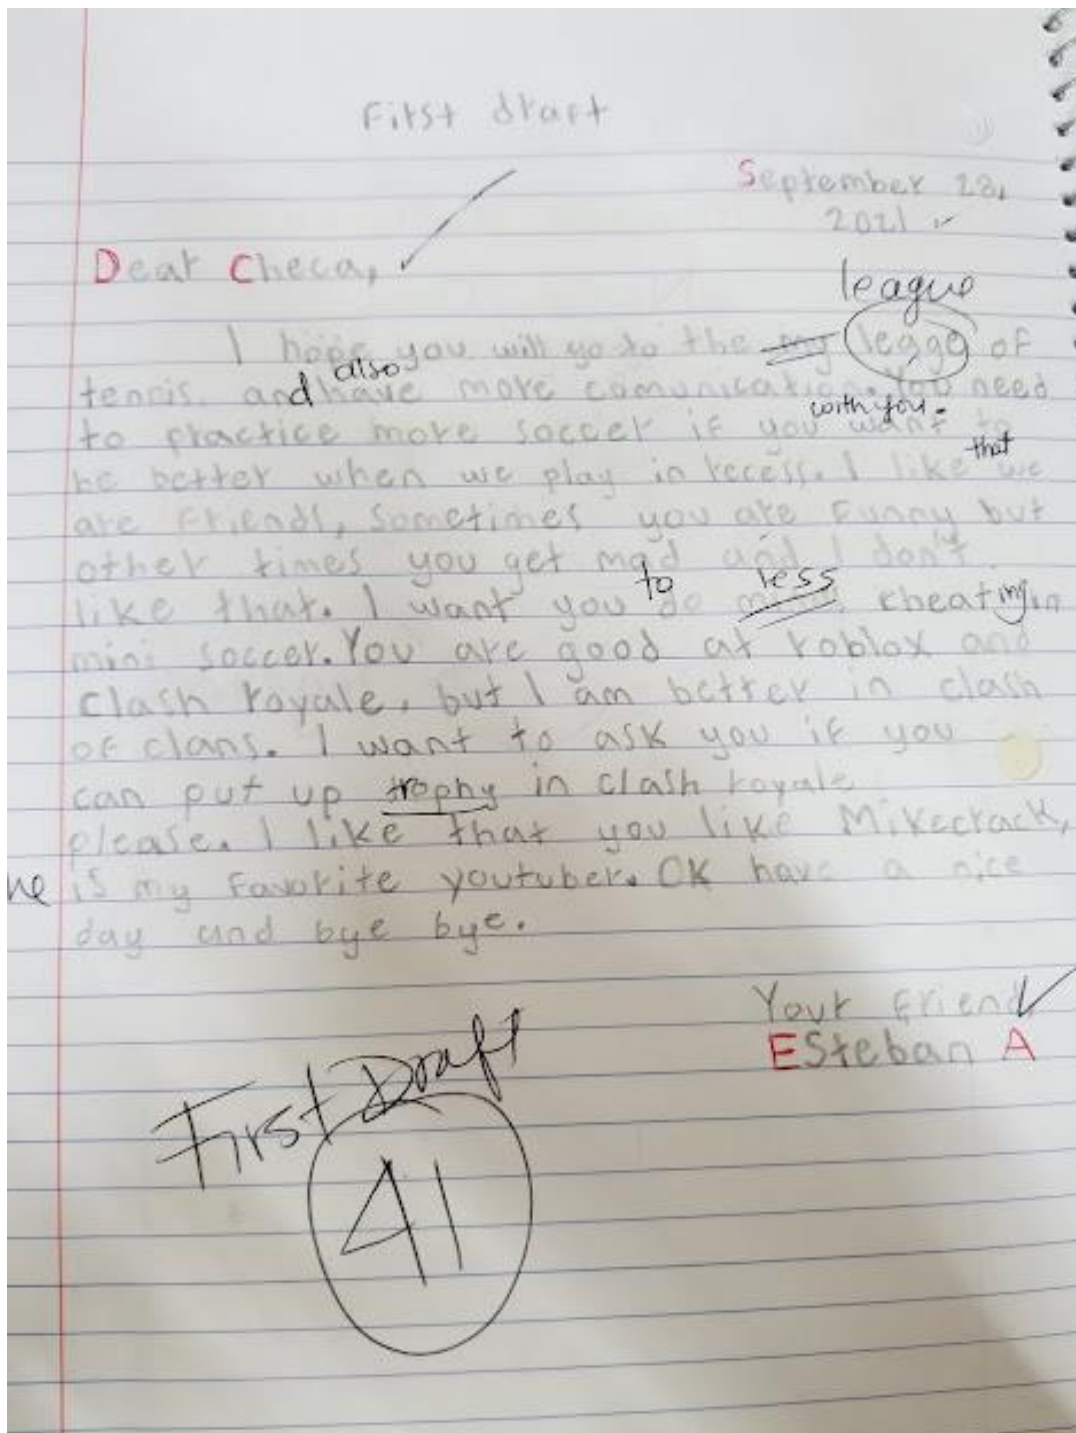 First draft
September 28,
2021
Dear Checa,
league
I hope you will go to the my leage of
also
tennis. and have more comunication. You need
with you.
to practice more soccer if you want to
that
be better when we play in recess. I like we
are Friends, Sometimes you are Funny but
other times you get mad and I don't
to less
like that. I want you do cheating in
mini soccer. You are good at roblox and
clash royale, but I am better in clash
of clans. I want to ask you if you
can put up trophy in clash royale
please. I like that you like Mikecrack,
he is my Favorite youtuber. OK have a nice
day and bye bye.
Your Friend
ESteban A
First Draft
41